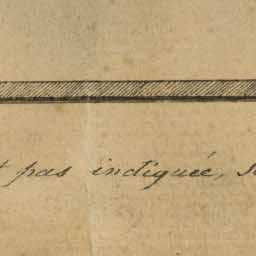 t pas indiquée, s